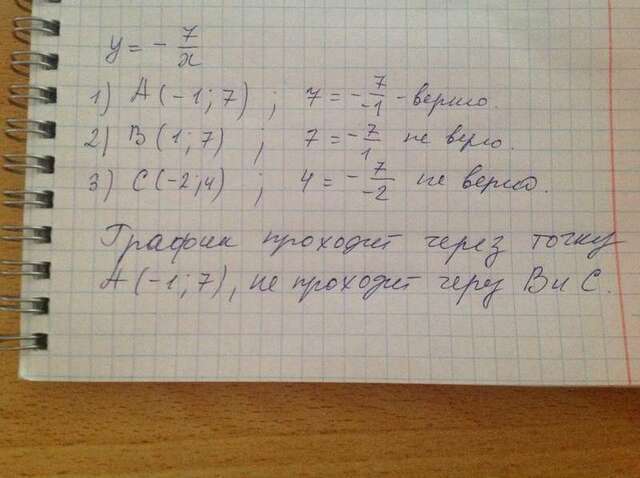 y = - 7/x
1) A (-1; 7) ; 7 = - 7/-1 - верно.
2) B (1; 7) ; 7 = - 7/1 не верно.
3) C (-2; 4) ; 4 = - 7/-2 не верно.
График проходит через точку
A (-1; 7), не проходит через B и C.